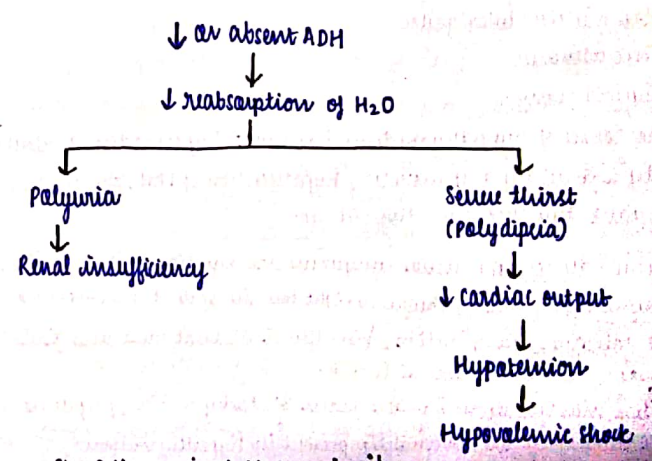 ↓ or absent ADH
↓ reabsorption of H₂O
Polyuria
Renal insufficiency
Severe thirst
(Polydipsia)
↓ Cardiac output
Hypotension
Hypovolemic shock